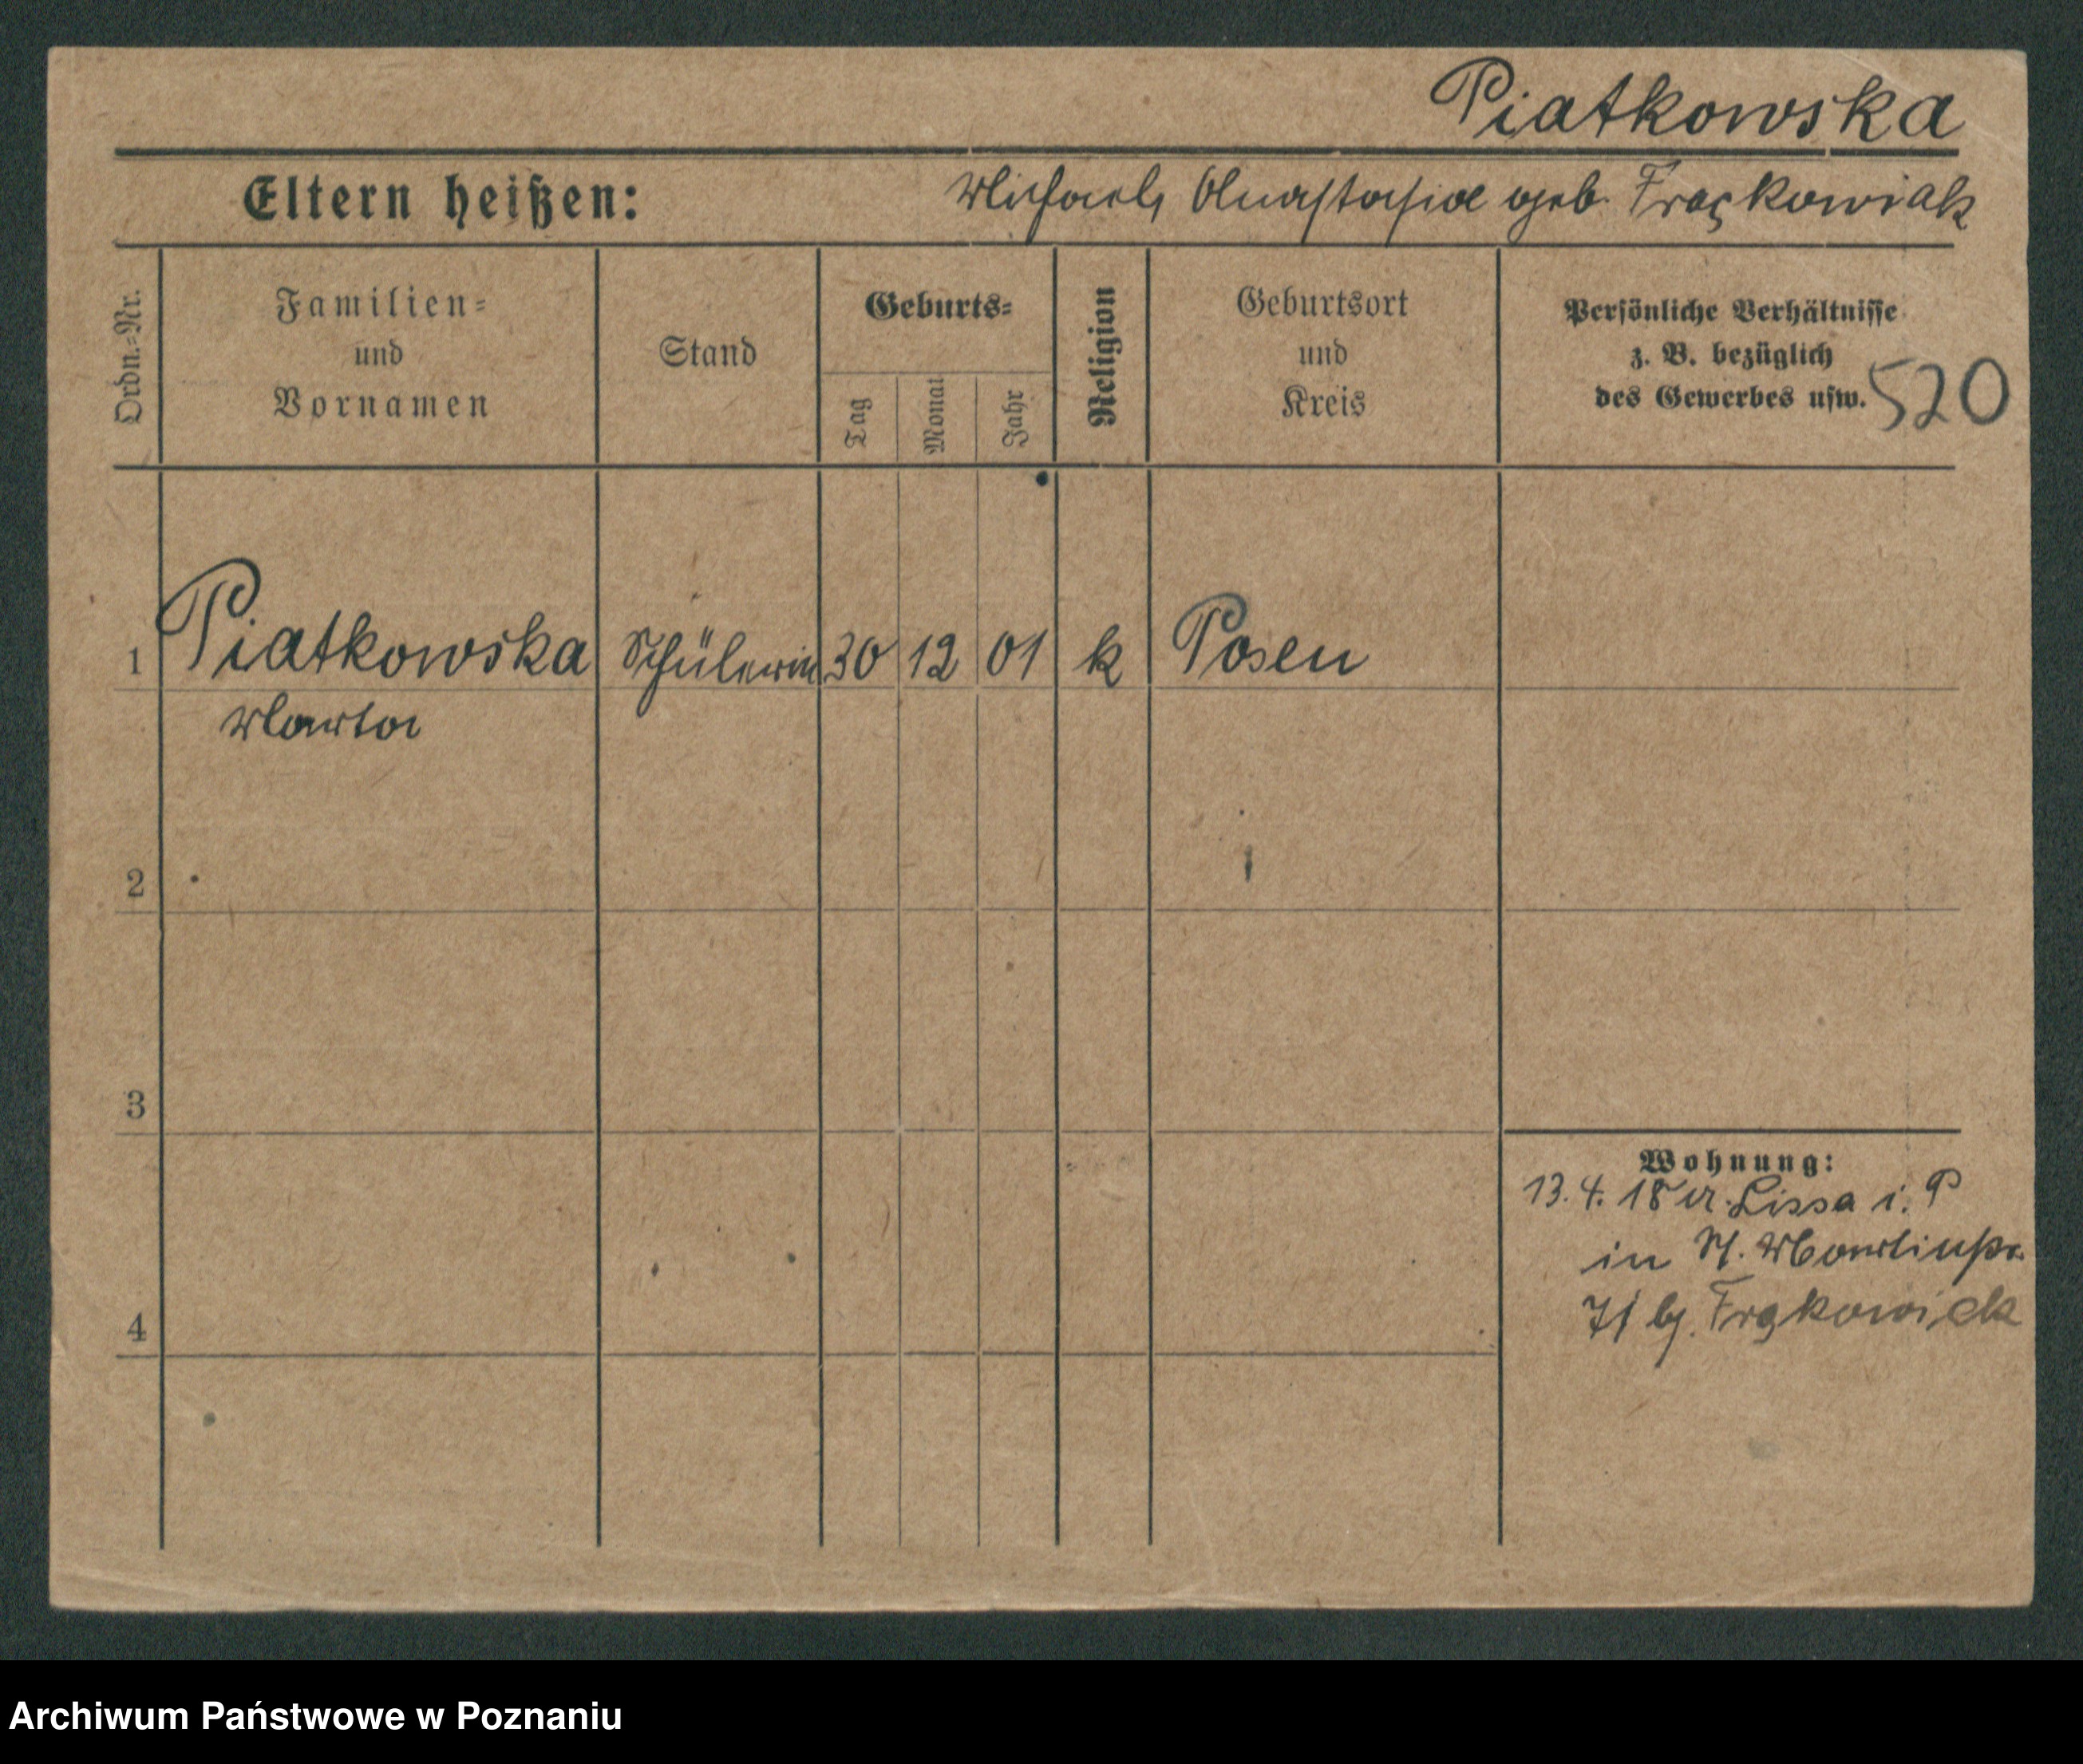 Piatkowska
Eltern heißen: Michael, Anastasia geb. Frąckowiak
Ordn.-Nr.
Familien-
und
Vornamen
Stand
Geburts-
Tag
Monat
Jahr
Religion
Geburtsort
und
Kreis
Persönliche Verhältnisse
z. B. bezüglich
des Gewerbes usw.
520
1 Piatkowska Schülerin 30 12 01 k Posen
Marta
2
3
4
Wohnung:
13. 4. 18 Lissa i. P
in
bei
Archiwum Państwowe w Poznaniu